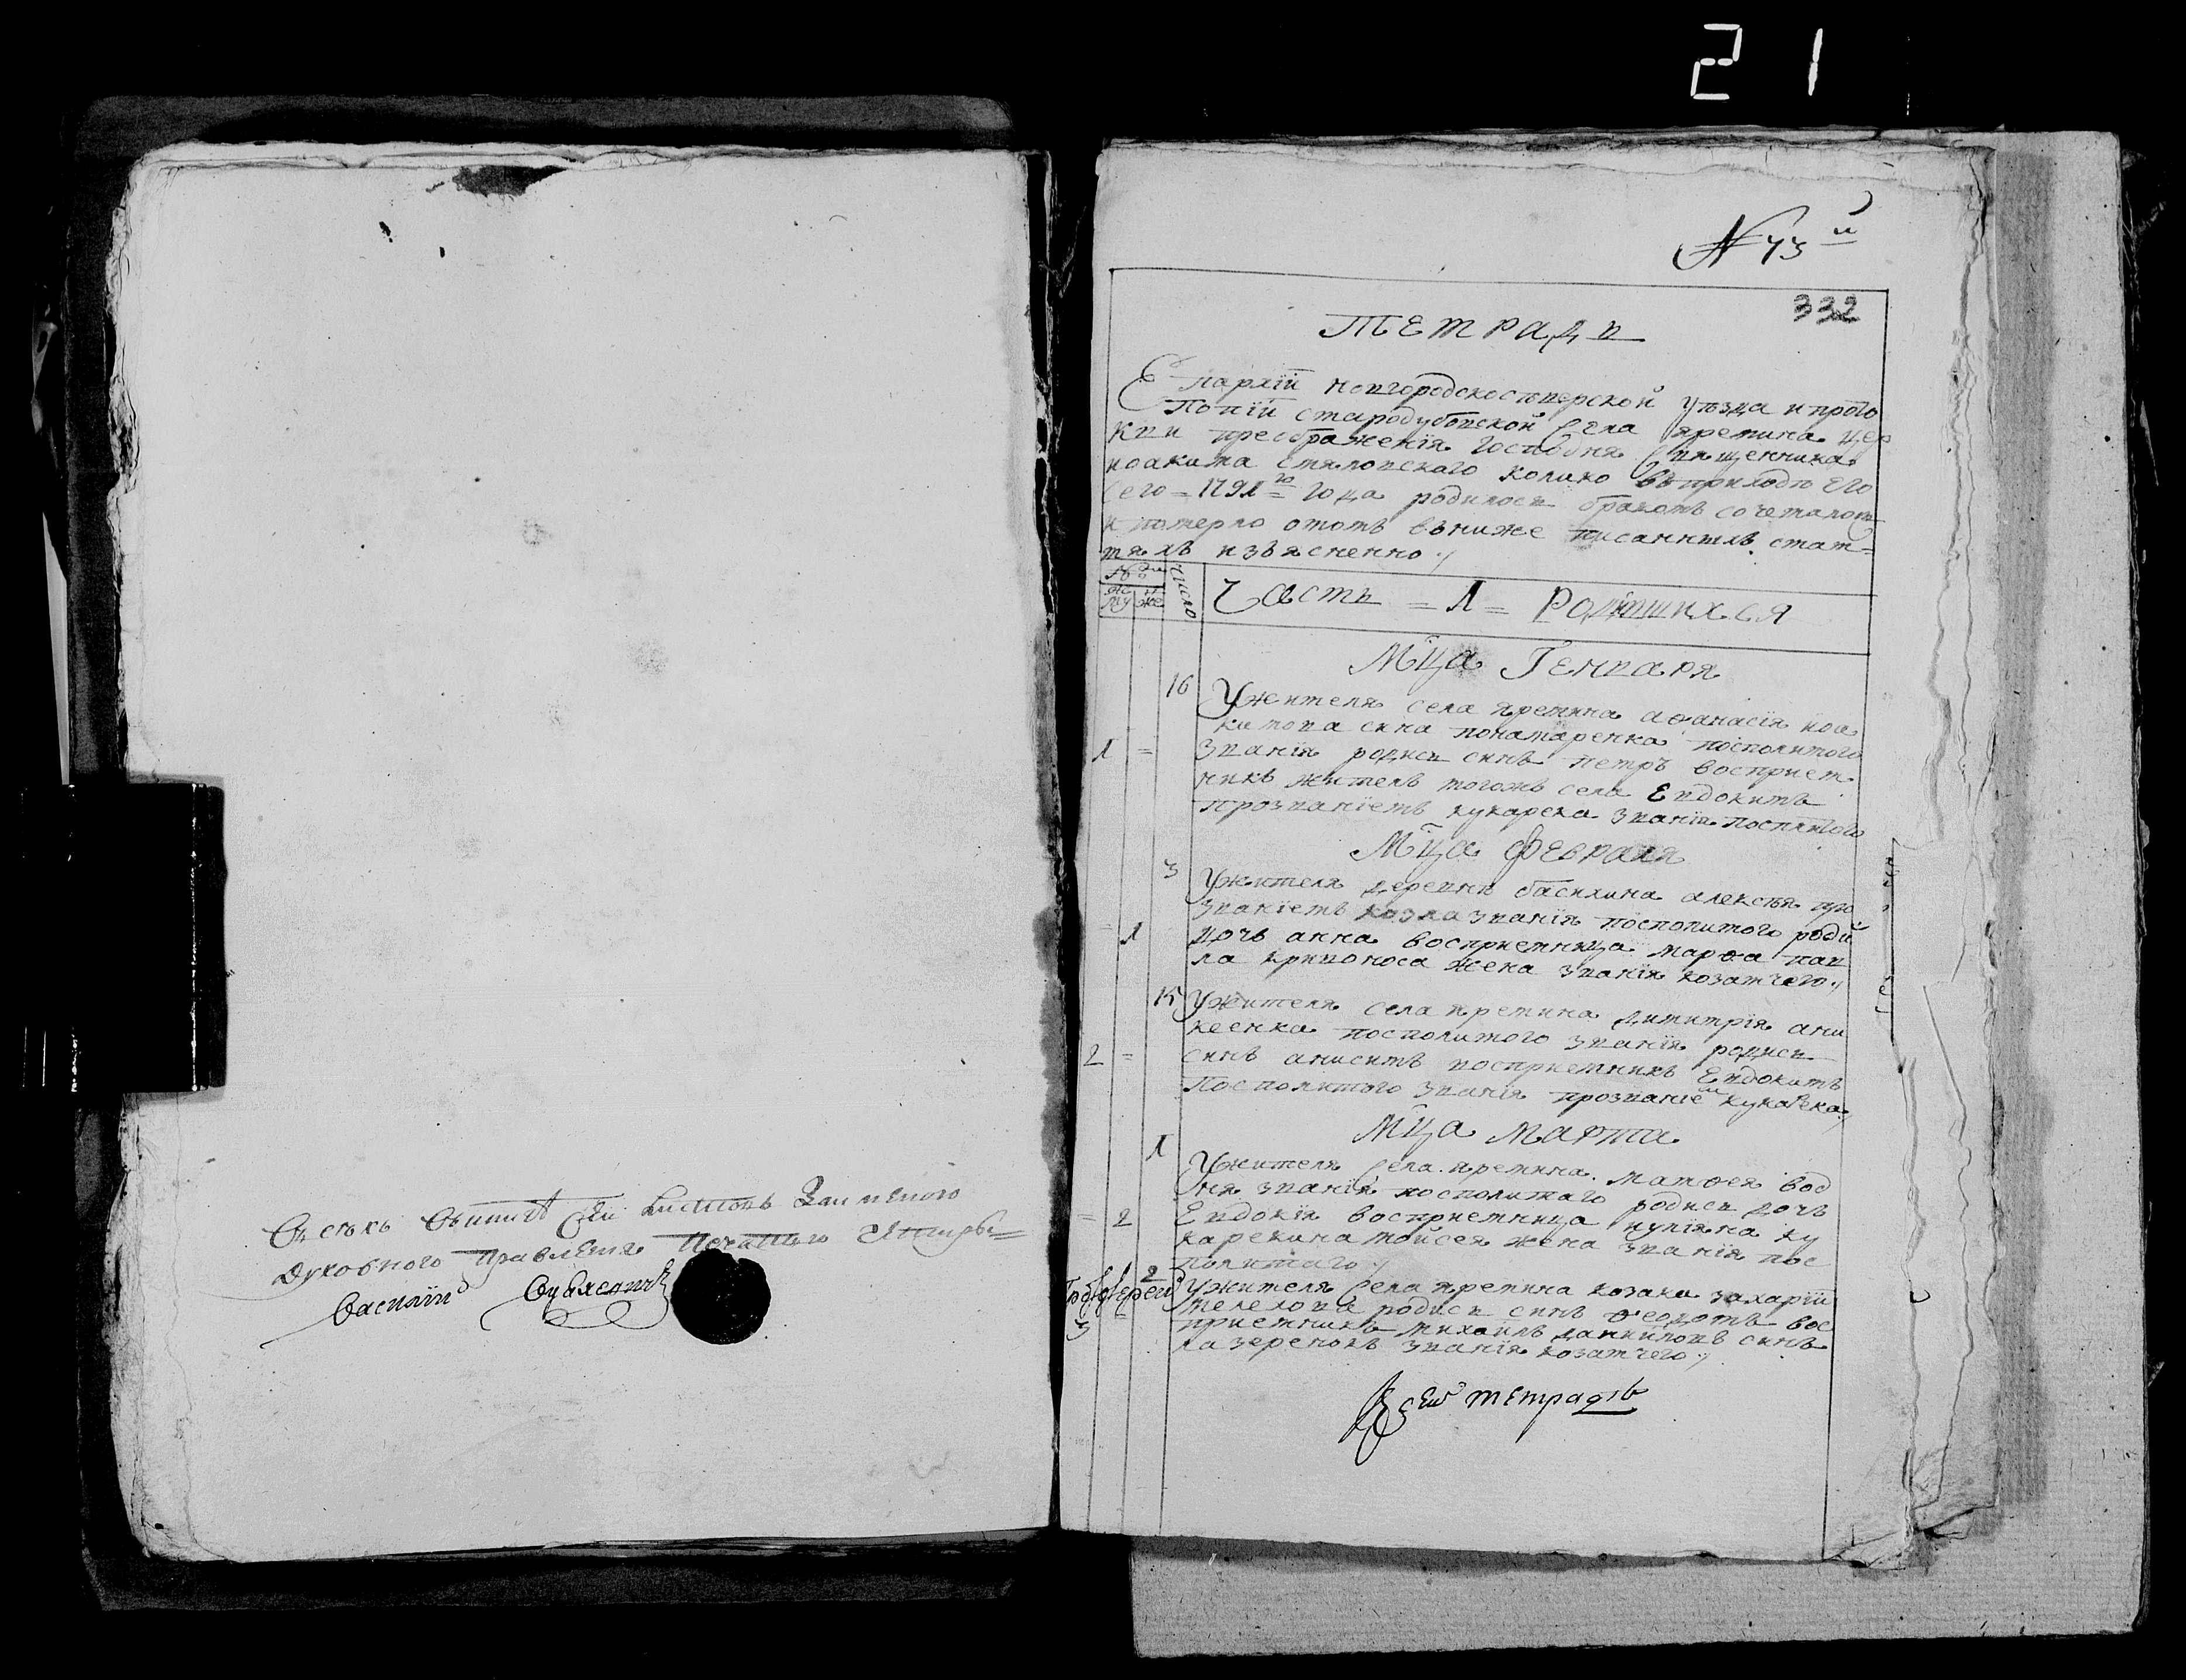 21
N 43 й
332
ТЕТРАДИ
Епархїй новгородскосѣверской уѣзда и прото
Попїй стародубовской села яремина цер
кви преображенїя Господня священника
иоакима колико въ приходѣ его
сего = 1791 го = года родилось бракомъ сочеталось
и померло отомъ вниже писаннихъ стат=
тяхъ изъясненно
число
му же
Часть = 1 = Родившихся
Мцa Генваря
16 У жителя села яремина афанасїя иоа
кимова сина понамаренка посполитого
1 = званїя родись синъ петръ восприем
никъ житель тогожъ села Евдокимъ
прозванїемъ кукарека званїя посплитого
Мцa Февраля
3 У жителя деревнѣ басихина алексѣя про
званїемъ козла званїя посполитого роди
= 1 дочь анна восприемница марфа пав
ла кривоноса жена званїя козатчего
15 У жителя села яремина димитрїя ани
кеенка посполитого званїя родись
2 = синъ анисимъ восприемникъ Евдокимъ
Посполитого званїя прозванїем кукарека
Мцa Марта
1 У жителя села яремина матфея вод
ня званїя посполитаго родись дочь
= 2 Евдокїя восприемница
карекина мойсея жена званїя пос
политаго
2 У жителя села яремина козака захарїй
мелехова родись синъ феодотъ вос
3 = приемникъ михаилъ данииловъ синъ
лазеренокъ званїя козатчего
Всей тетрадѣ
духовного правления
Василїй